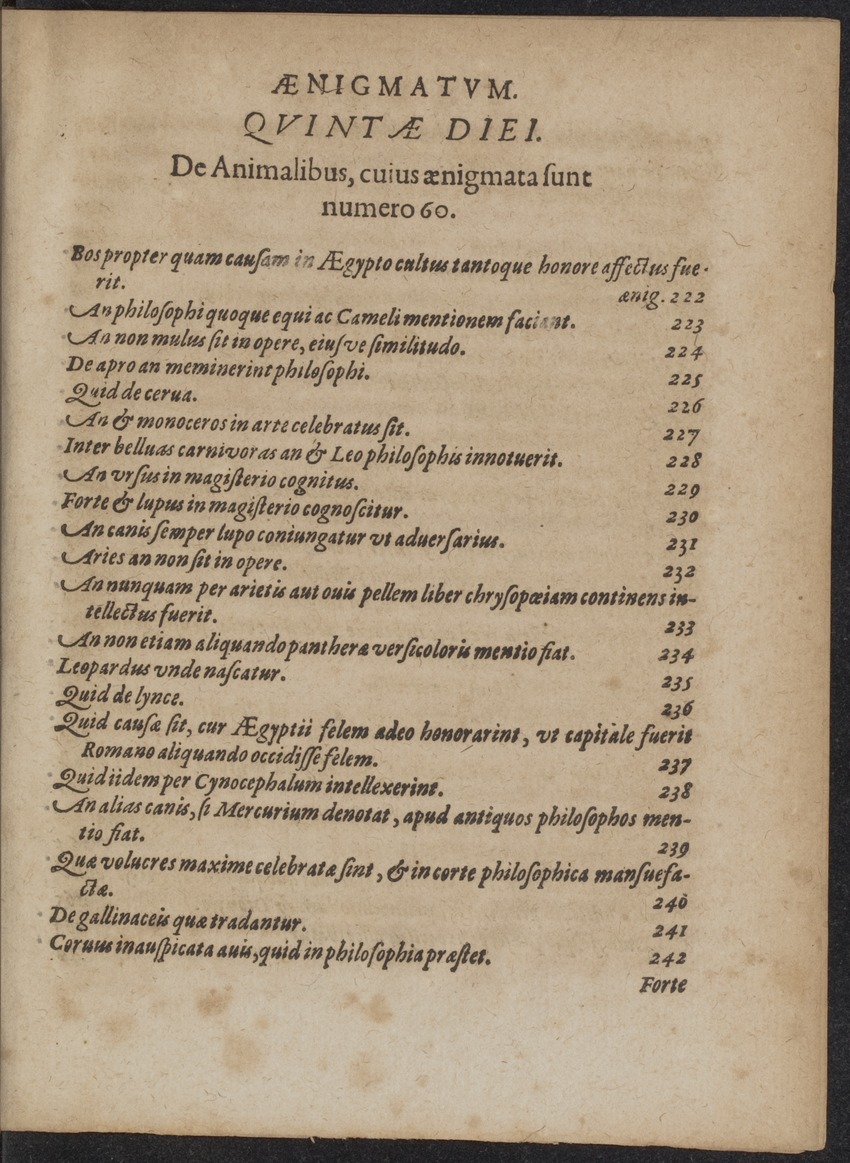 ÆNIGMATVM.
QVINTÆ DIEI.
De Animalibus, cuius ænigmata ſunt
numero 60.
Bos propter quam cauſam in Ægypto cultus tantoque honore affectus fue-
rit. ænig. 222
An philoſophi quoque equi ac Cameli mentionem faciant. 223
An non mulus ſit in opere, eiuſve ſimilitudo. 224
De apro an meminerint philoſophi. 225
Quid de cerua. 226
An & monoceros in arte celebratus ſit. 227
Inter belluas carnivoras an & Leo philoſophis innotuerit. 228
An vrſus in magiſterio cognitus. 229
Forte & lupus in magiſterio cognoſcitur. 230
An canis ſemper lupo coniungatur vt aduerſarius. 231
Aries an non ſit in opere. 232
An nunquam per arietis aut ouis pellem liber chryſopœiam continens in-
tellectus fuerit. 233
An non etiam aliquando pantheræ verſicoloris mentio fiat. 234
Leopardus vnde naſcatur. 235
Quid de lynce. 236
Quid cauſæ ſit, cur Ægyptii felem adeo honorarint, vt capitale fuerit
Romano aliquando occidiſſe felem. 237
Quid iidem per Cynocephalum intellexerint. 238
An alias canis, ſi Mercurium denotat, apud antiquos philoſophos men-
tio fiat. 239
Quæ volucres maxime celebratæ ſint, & in corte philoſophica manſuefa-
ctæ. 240
De gallinaceis quæ tradantur. 241
Coruus inauſpicata auis, quid in philoſophia præſtet. 242
Forte